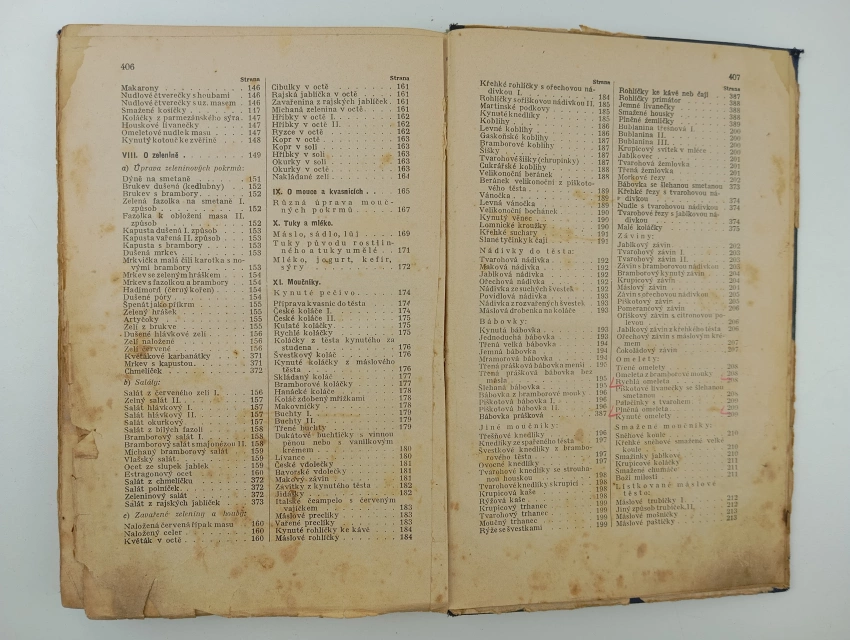 406
Strana
Makarony 146
Nudlové čtverečky s houbami 146
Nudlové čtverečky s uz. masem 146
Smažené kosičky 147
Koláčky z parmezánského sýra 147
Houskové livanečky 147
Omeletové nudle k masu 147
Kynutý kotouč ke zvěřině 148
VIII. O zelenině 149
a) Úprava zeleninových pokrmů:
Dýně na smetaně 151
Brukev dušená (kedlubny) 152
Brukev s brambory 152
Zelená fazolka na smetaně I.
způsob 152
Fazolka k obložení masa II.
způsob 152
Kapusta dušená I. způsob 152
Kapusta vařená II. způsob 152
Kapusta s brambory 152
Dušená mrkev 153
Mrkvička malá čili karotka s no-
vými brambory 153
Mrkev se zeleným hráškem 154
Mrkev s fazolkou a brambory 154
Hadimord (černý kořen) 154
Dušené póry 154
Špenát jako příkrm 155
Zelený hrášek 155
Artyčoky 155
Zelí z brukve 155
Dušené hlávkové zelí 156
Zelí naložené 156
Zelí červené 156
Květákové karbanátky 371
Mrkev s kapustou 371
Chmelíček 372
b) Saláty:
Salát z červeného zelí I. 156
Zelný salát II. 157
Salát hlávkový I. 157
Salát hlávkový II. 157
Salát okurkový 157
Salát z bílých fazolí 158
Bramborový salát I. 158
Bramborový salát s majonézou II. 158
Míchaný bramborový salát 159
Vlašský salát 159
Ocet ze slupek jablek 159
Estragonový ocet 160
Salát z chmelíčku 372
Salát polníček 372
Zeleninový salát 372
Salát z rajských jablíček 373
c) Zavařené zeleniny a houby:
Naložená červená řípa k masu 160
Naložený celer 160
Květák v octě 160
Strana
Cibulky v octě 161
Rajská jablíčka v octě 161
Zavařenina z rajských jablíček 161
Míchaná zelenina v octě 161
Hříbky v octě I. 162
Hříbky v octě II. 162
Ryzce v octě 162
Kopr v octě 163
Kopr v soli 163
Hříbky v soli 163
Okurky v soli 163
Okurky v octě 163
Nakládané zelí 164
IX. O mouce a kvasnicích 165
Různá úprava mouč-
ných pokrmů 167
X. Tuky a mléko.
Máslo, sádlo, lůj 169
Tuky původu rostlin-
ného a tuky umělé 171
Mléko, jogurt, kefír,
sýry 172
XI. Moučníky.
Kynuté pečivo 174
Příprava kvasnic do těsta 174
České koláče I. 174
České koláče II. 175
Kulaté koláčky 175
Rychlé koláčky 175
Koláčky z těsta kynutého za
studena 176
Švestkový koláč 176
Kynuté koláčky z máslového
těsta 176
Skládaný koláč 177
Bramborové koláčky 177
Hanácké koláče 178
Koláč zdobený mřížkami 178
Makovničky 178
Buchty I. 179
Buchty II. 179
Třené buchty 179
Dukátové buchtičky s vinnou
pěnou nebo s vanilkovým
krémem 180
Lívance 180
České vdolečky 181
Bavorské vdolečky 181
Makový závin 181
Závitky z kynutého těsta 182
Jidášky 182
Italské čeampelo s červeným
vajíčkem 183
Máslové preclíky 183
Vařené preclíky 183
Kynuté rohlíčky ke kávě 184
Máslové rohlíčky 184
407
Strana
Křehké rohlíčky s ořechovou ná-
divkou I. 184
Rohlíčky s oříškovou nádivkou II. 185
Martinské podkovy 185
Kynuté knedlíky 185
Koblihy 185
Levné koblihy 186
Gaskoňské koblihy 186
Bramborové koblihy 187
Šišky 187
Tvarohové šišky (chrupinky) 187
Cukrářské koblihy 188
Velikonoční beránek 188
Beránek velikonoční z piškoto-
vého těsta 189
Vánočka 189
Levná vánočka 189
Velikonoční bochánek 190
Kynutý věnec 190
Lomnické kroužky 190
Křehké suchary 191
Slané tyčinky k čaji 191
Nádivky do těsta:
Tvarohová nádivka 192
Maková nádivka 192
Jablková nádivka 192
Ořechová nádivka 192
Nádivka ze suchých švestek 192
Povidlová nádivka 192
Nádivka z rozvařených švestek 192
Máslová drobenka na koláče 193
Bábovky:
Kynutá bábovka 193
Jednoduchá bábovka 193
Třená velká bábovka 194
Jemná bábovka 194
Mramorová bábovka 194
Třená prášková bábovka menší 195
Třená prášková bábovka bez
másla 195
Šlehaná bábovka 195
Bábovka z brambor. mouky 196
Piškotová bábovka I. 196
Piškotová bábovka II. 196
Bábovka prášková 387
Jiné moučníky:
Třešňové knedlíky 196
Knedlíky ze spařeného těsta 197
Švestkové knedlíky z brambo-
rového těsta 197
Ovocné knedlíky 197
Tvarohové knedlíky se strouha-
nou houskou 198
Tvarohové knedlíky s krupicí 198
Krupicová kaše 198
Rýžová kaše 198
Krupicový trhanec 199
Tvarohový trhanec 199
Moučný trhanec 199
Rýže se švestkami 199
Strana
Rohlíčky ke kávě neb čaji 387
Rohlíčky primátor 388
Jemné livanečky 388
Smažené housky 388
Plněné žemličky 389
Bublanina třešňová I. 200
Bublanina II. 200
Bublanina III. 200
Krupicový svítek v mléce 200
Jablkovec 201
Tvarohová žemlovka 201
Třená žemlovka 201
Mrkvové řezy 202
Bábovka se šlehanou smetanou 373
Křehké řezy s tvarohovou ná-
divkou 374
Nudle s tvarohovou nádivkou 374
Tvarohové řezy s jablkovou ná-
divkou 374
Malé koláčky 375
Záviny:
Jablkový závin 202
Tvarohový závin I. 203
Tvarohový závin II. 203
Závin s bramborovou nádivkou 204
Bramborový kynutý závin 204
Krupicový závin 204
Máslový závin 205
Závin s ořechovou nádivkou 205
Piškotový závin 205
Pomerančový závin 206
Oříškový závin s citronovou po-
levou 206
Jablkový závin z křehkého těsta 206
Ořechový závin s máslovým kré-
mem 207
Čokoládový závin 207
Omelety:
Třené omelety 208
Omeleta z bramborové mouky 208
Rychlá omeleta 208
Piškotové livanečky se šlehanou
smetanou 208
Palačinky s tvarohem 209
Plněná omeleta 209
Kynuté omelety 209
Smažené moučníky:
Sněhové koule 210
Křehké sněhové smažené velké
koule 210
Smaženky jablkové 210
Krupicové koláčky 211
Smažené chumáče 211
Boží milosti 211
Lístkované máslové
těsto:
Máslové trubičky I. 212
Jiný způsob trubiček II. 212
Máslové mošničky 213
Máslové paštičky 213